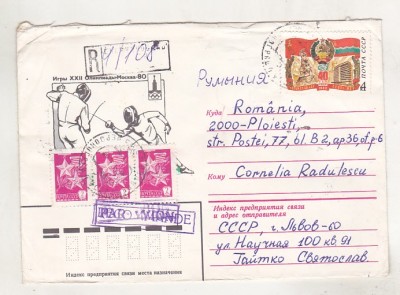 R 4/108
Игры XXII Олимпиады • Москва-80
ПОЧТА СССР
60
Румыния
Куда România,
2000-Ploiesti,
str. Postei, 77, bl. B 2, ap 36, et. 6
Кому Cornelia Radulescu
PAR AVION
Индекс предприятия связи
и адрес отправителя
СССР, г. Львов-60
ул. Научная 100 кв. 91
Гайтко Святослав.
Индекс предприятия связи места назначения